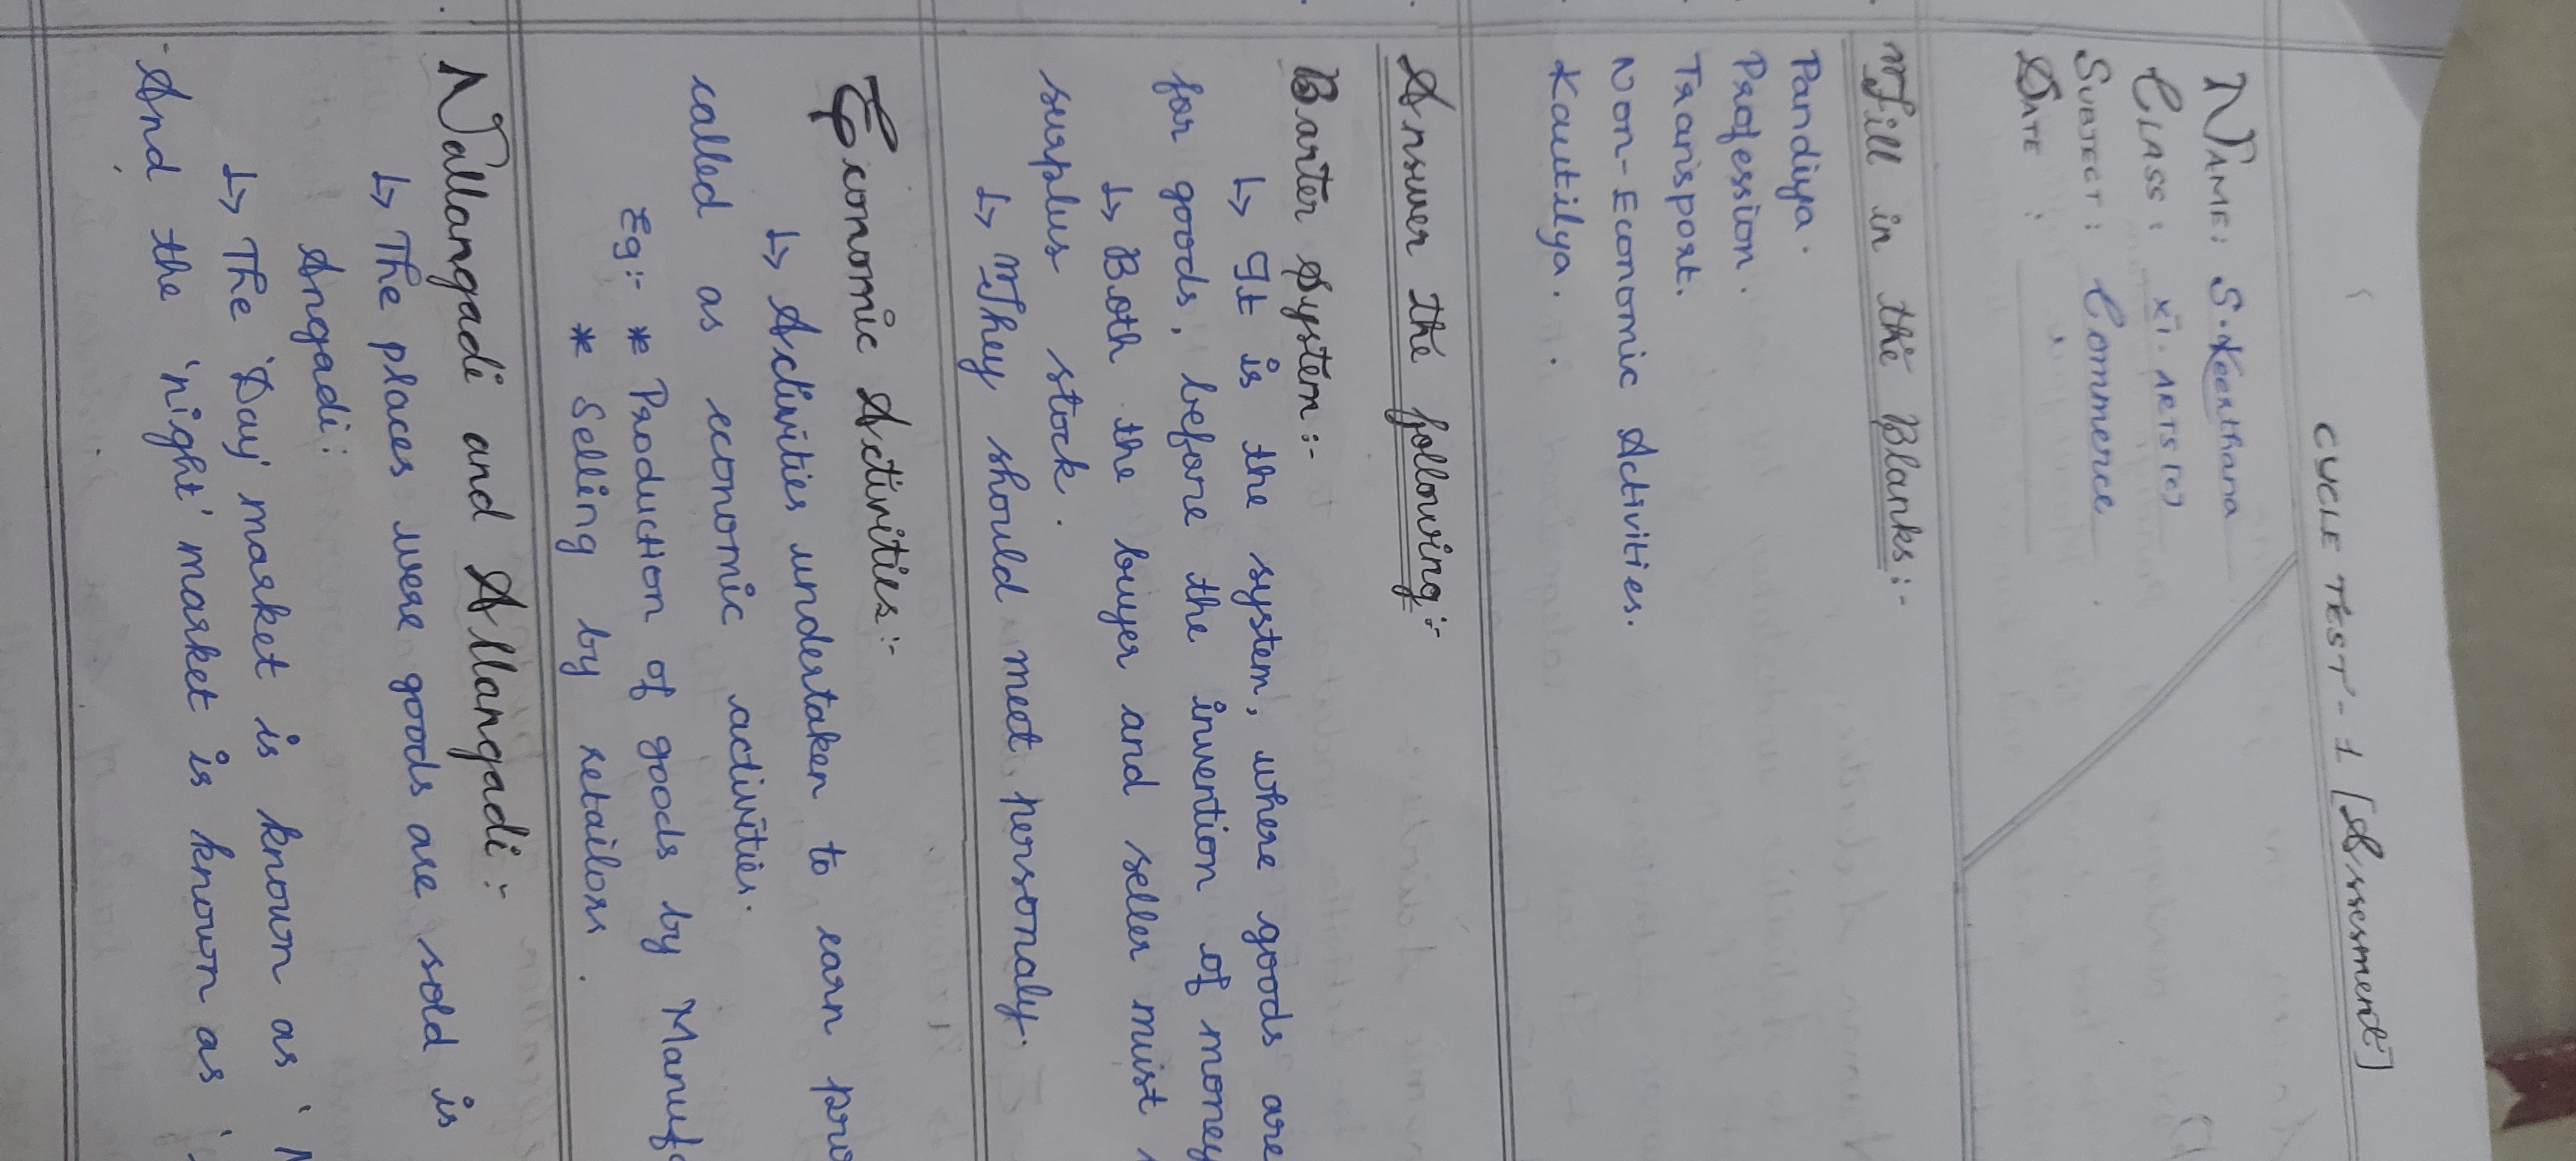 CYCLE TEST - 1 [Assesment]
NAME: S.Keerthana
CLASS: XI. ARTS (C)
SUBJECT: Commerce
DATE :
Fill in the Blanks:-
Pandiya.
Profession.
Transport.
Non-Economic Activities.
Kautilya.
Answer the following:-
Barter System:-
↳ It is the system, where goods are
for goods, before the invention of money
↳ Both the buyer and seller must
surplus stock.
↳ They should meet personaly.
Economic Activities:-
↳ Activities undertaken to earn
called as economic activities.
Eg:- * Production of goods by
* Selling by retailors.
Nallangadi and Allangadi:-
↳ The places were goods are sold is
Angadi:
↳ The 'Day' market is known as
And the 'night' market is known as